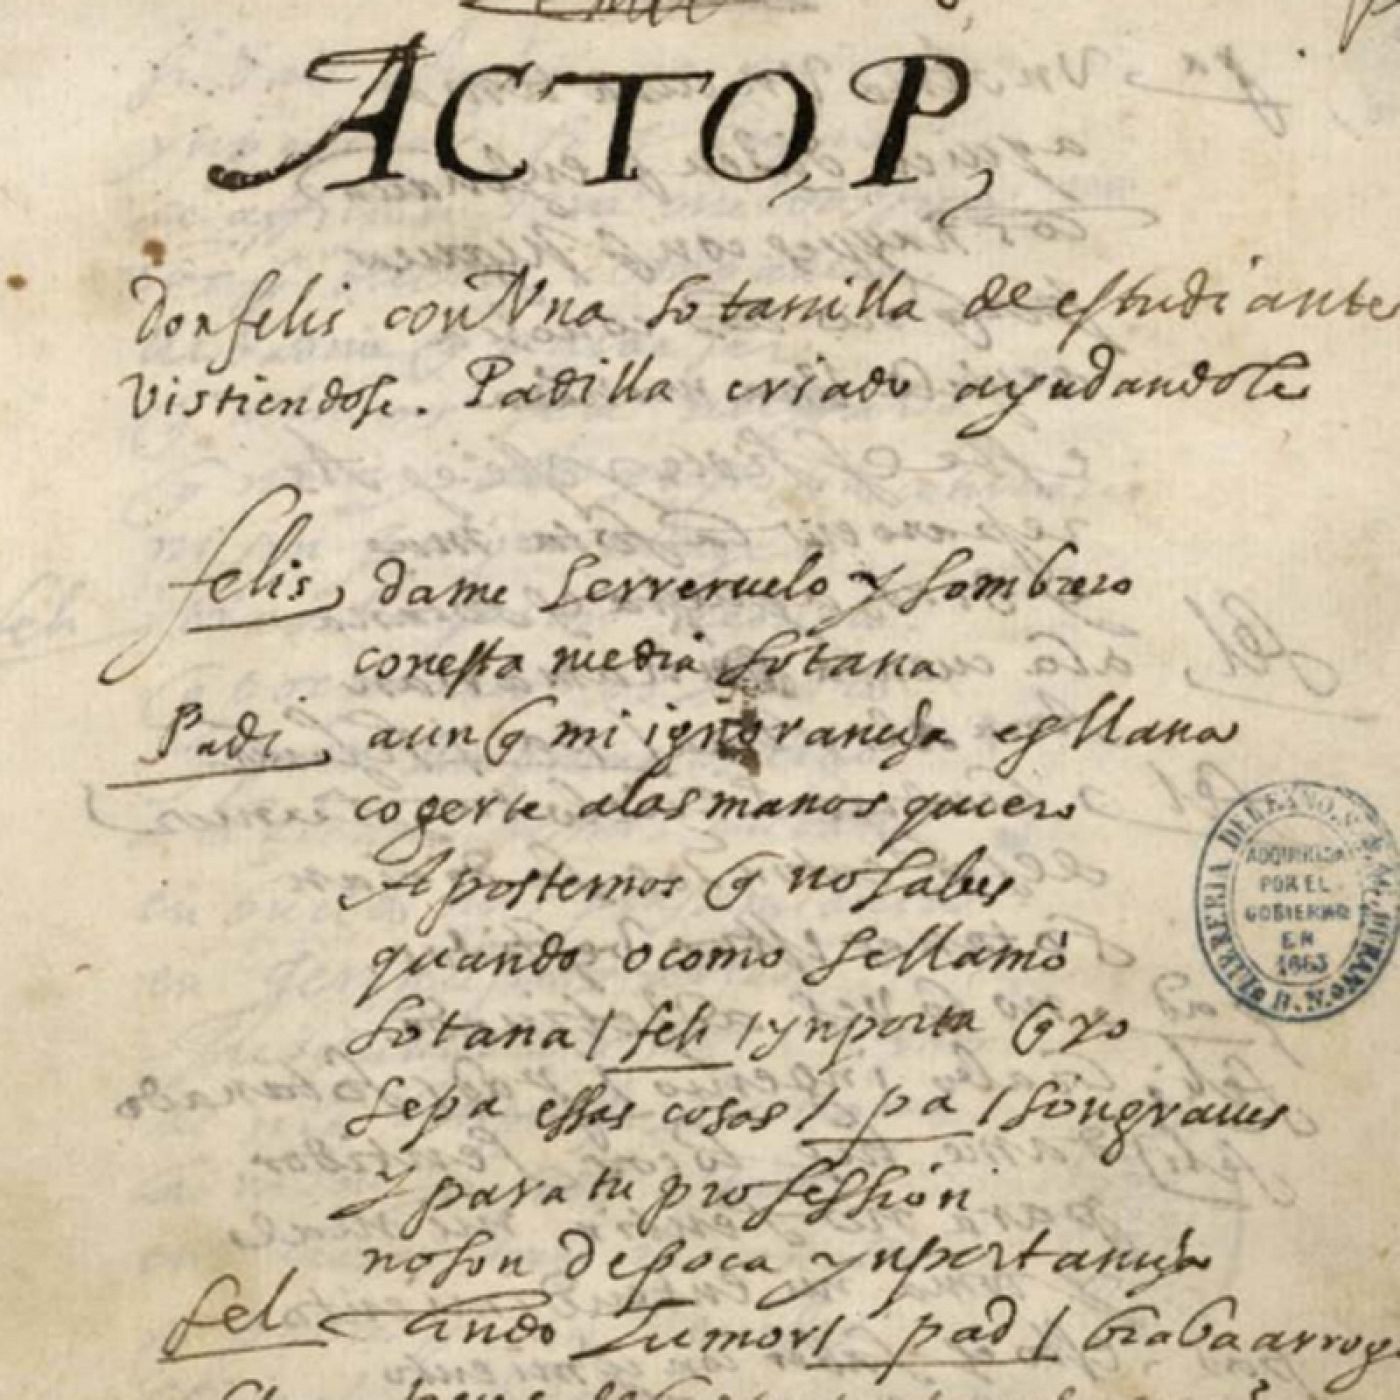 ACTO, P,
Don felis con Vna sotanilla de estudiante
vistiendose. Padilla criado ayudandole
felis, dame ferreruelo y sombrero
con esta media sotana
Padi, aunq mi ignorançia es llana
cogerte a las manos quiero
Apostemos q no sabes
quando o como se llamó
sotana / feli / ynporta q yo
sepa essas cosas / pa / son graues
y para tu professión
no son de poca ynportançia
fel lindo humor / pad / braba arrog
ADQUIRIDA
POR EL
GOBIERNO
EN
1863